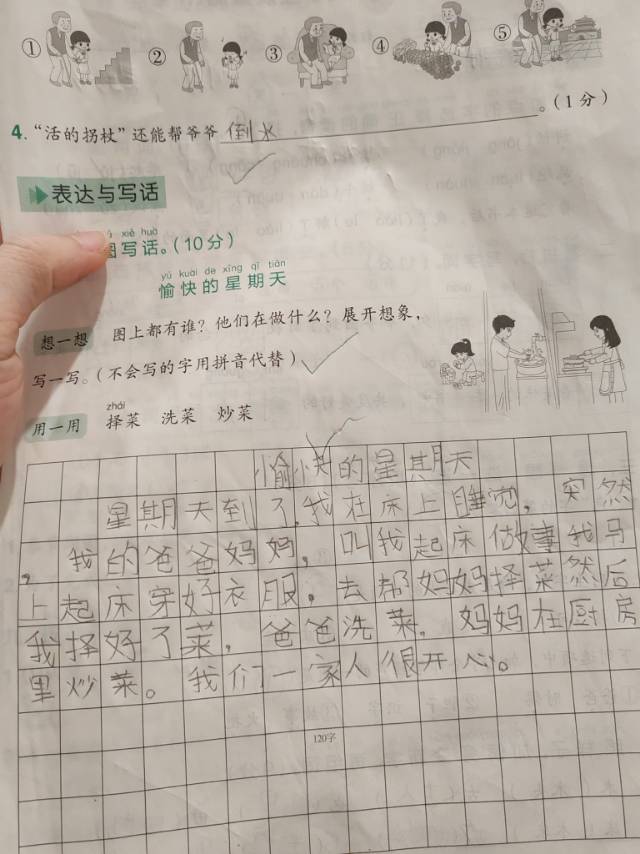 ① ② ③ ④ ⑤
4.“活的拐杖”还能帮爷爷倒水。(1分)
表达与写话
xiě huà
写话。(10分)
yú kuài de xīng qī tiān
愉快的星期天
想一想 图上都有谁?他们在做什么?展开想象，
写一写。(不会写的字用拼音代替)
zhái
用一用 择菜 洗菜 炒菜
愉快的星期天
星期天到了,我在床上睡觉,突然
,我的爸爸妈妈,叫我起床做事我马
上起床穿好衣服,去帮妈妈择菜然后
我择好了菜,爸爸洗菜.妈妈在厨房
里炒菜。我们一家人很开心。
120字